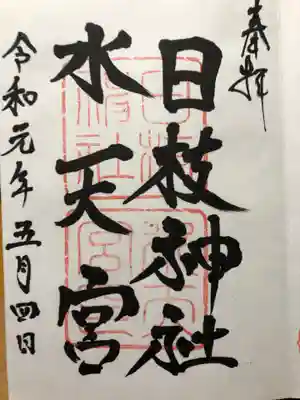 奉拝
日枝神社
水天宮
令和元年五月四日